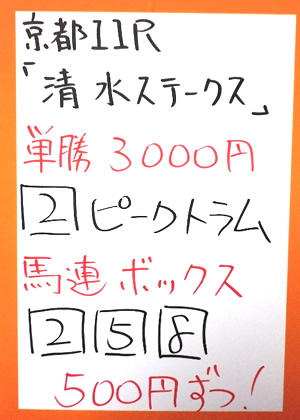 京都11R
「清水ステークス」
単勝 3000円
2 ピークトラム
馬連 ボックス
2 5 8
500円ずつ!